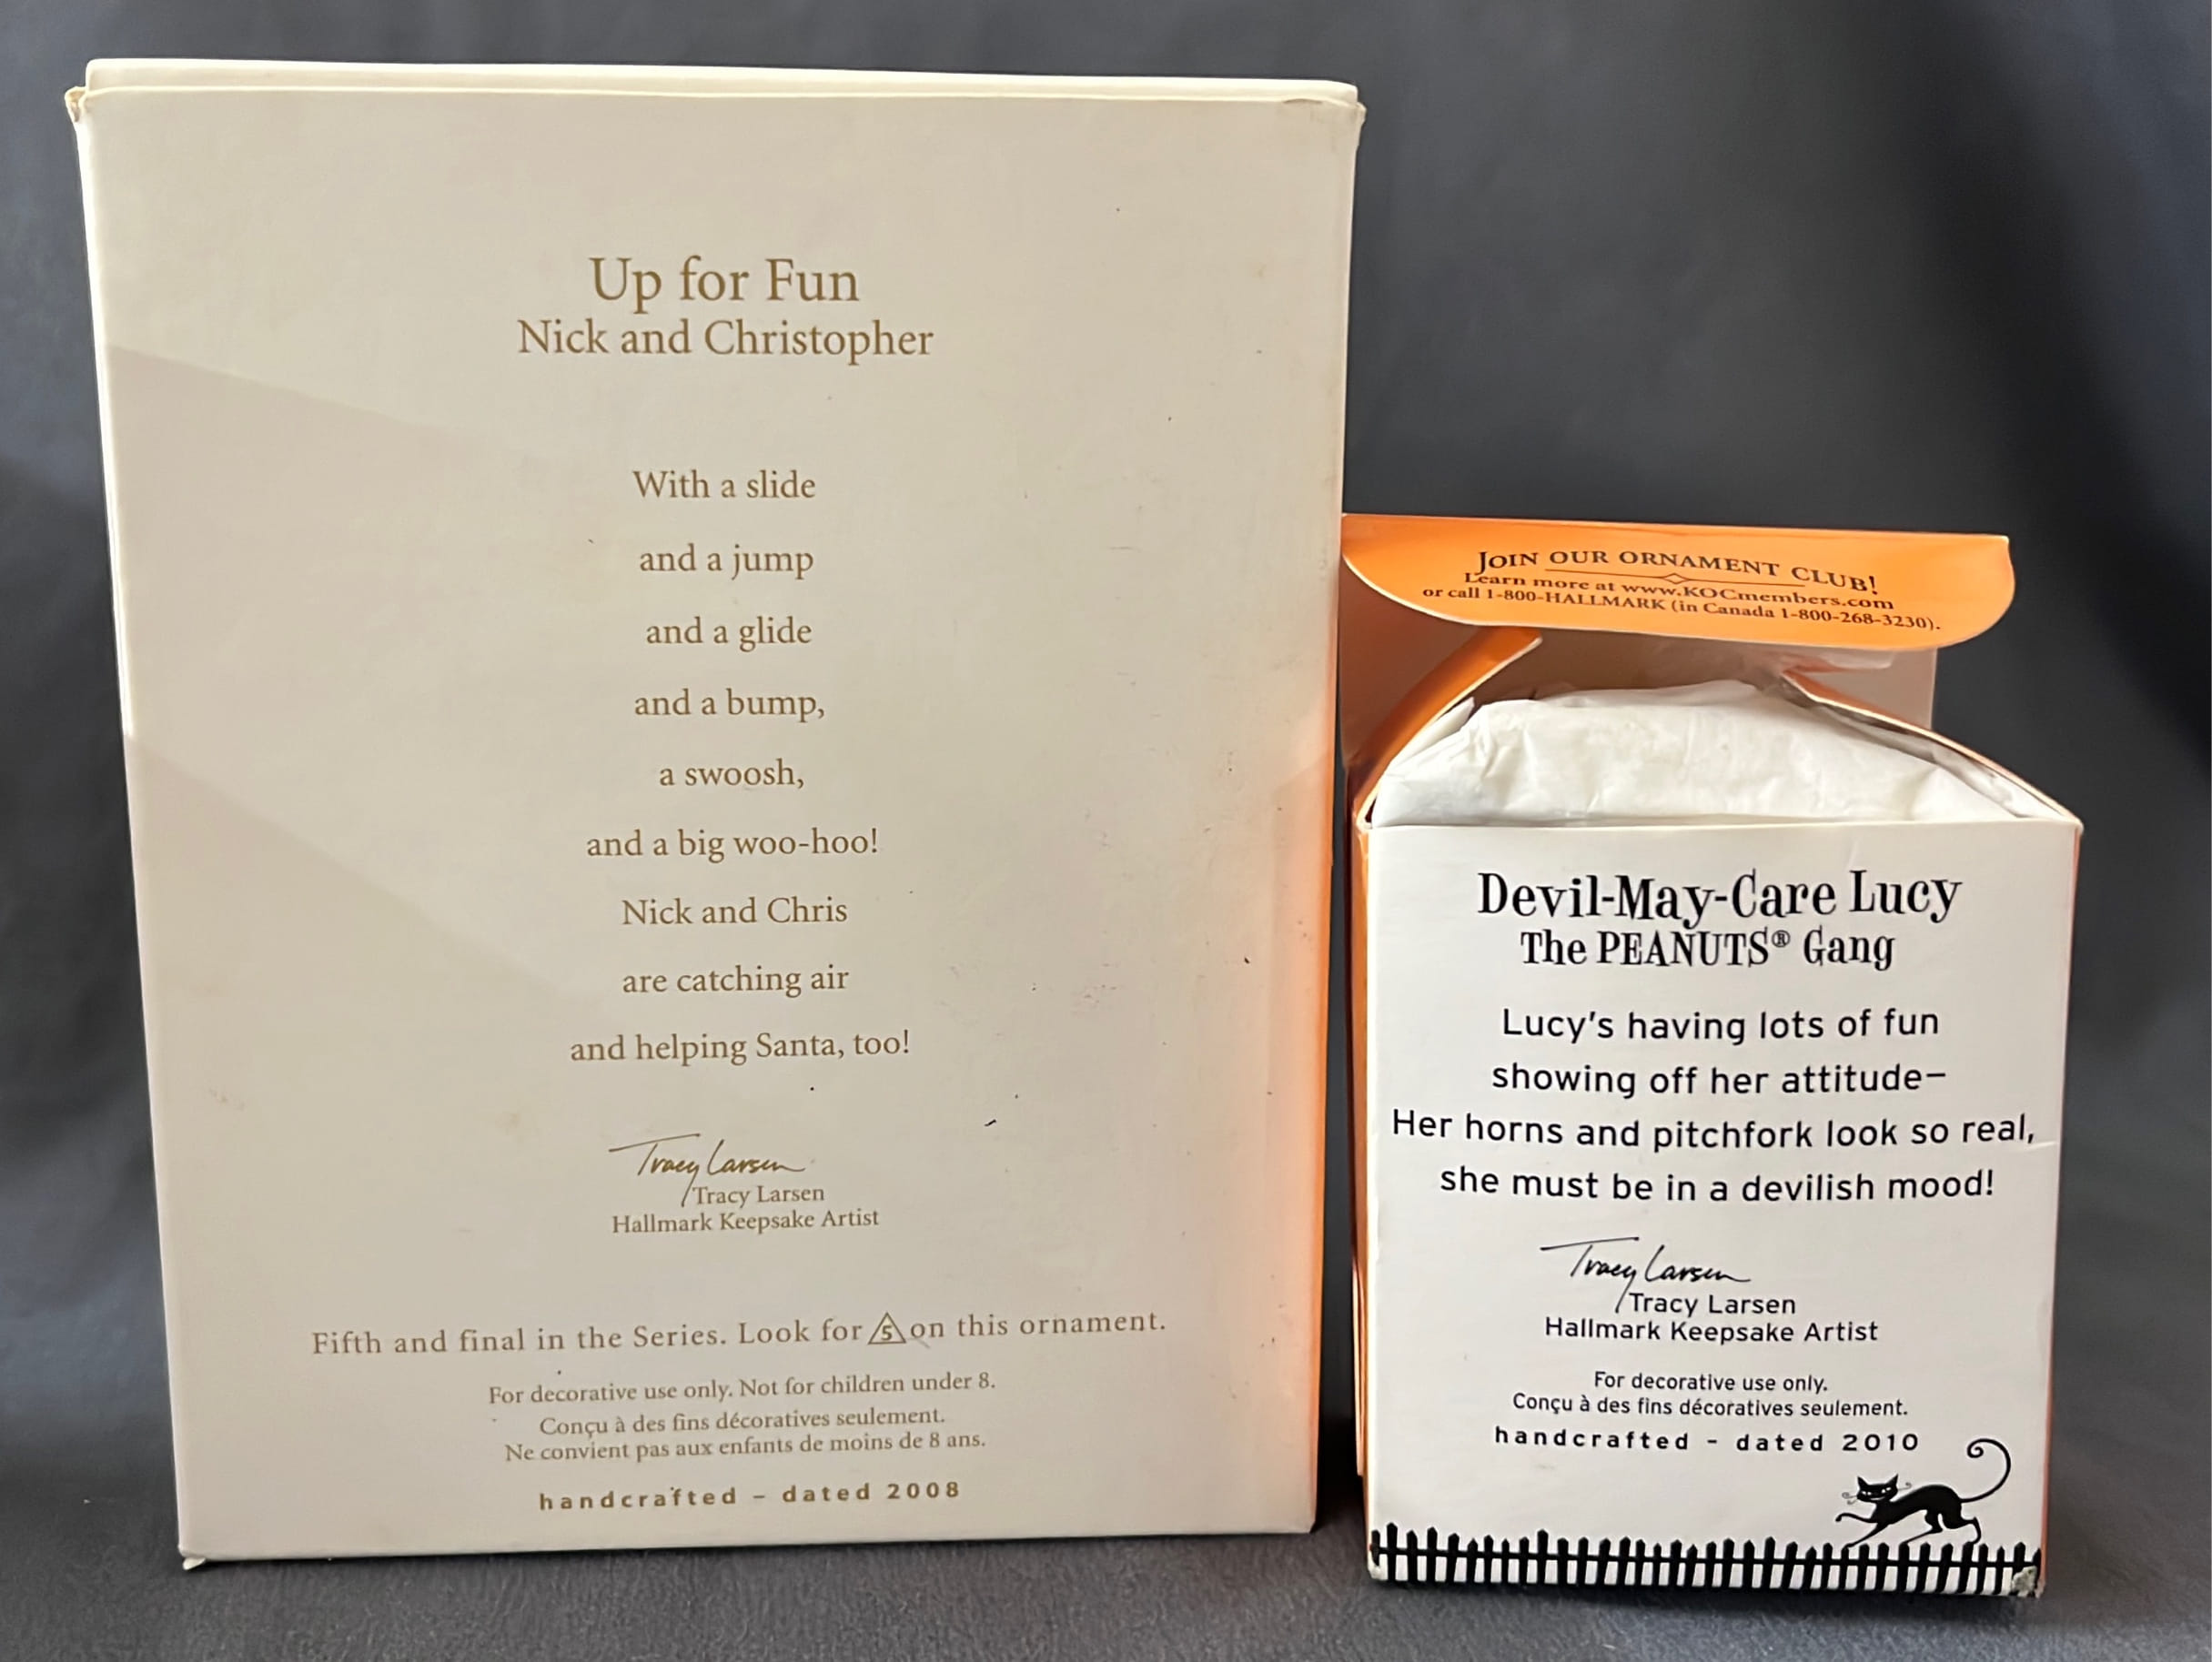 Up for Fun
Nick and Christopher
With a slide
and a jump
and a glide
and a bump,
a swoosh,
and a big woo-hoo!
Nick and Chris
are catching air
and helping Santa, too!
Tracy Larsen
Tracy Larsen
Hallmark Keepsake Artist
Fifth and final in the Series. Look for 5 on this ornament.
For decorative use only. Not for children under 8.
Conçu à des fins décoratives seulement.
Ne convient pas aux enfants de moins de 8 ans.
handcrafted – dated 2008
JOIN OUR ORNAMENT CLUB!
Learn more at www.KOCmembers.com
or call 1-800-HALLMARK (in Canada 1-800-268-3230).
Devil-May-Care Lucy
The PEANUTS® Gang
Lucy's having lots of fun
showing off her attitude—
Her horns and pitchfork look so real,
she must be in a devilish mood!
Tracy Larsen
Tracy Larsen
Hallmark Keepsake Artist
For decorative use only.
Conçu à des fins décoratives seulement.
handcrafted – dated 2010